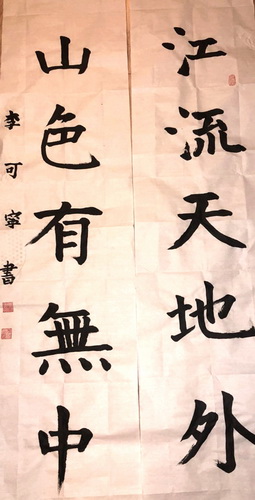 江流天地外
山色有無中
李可寧書